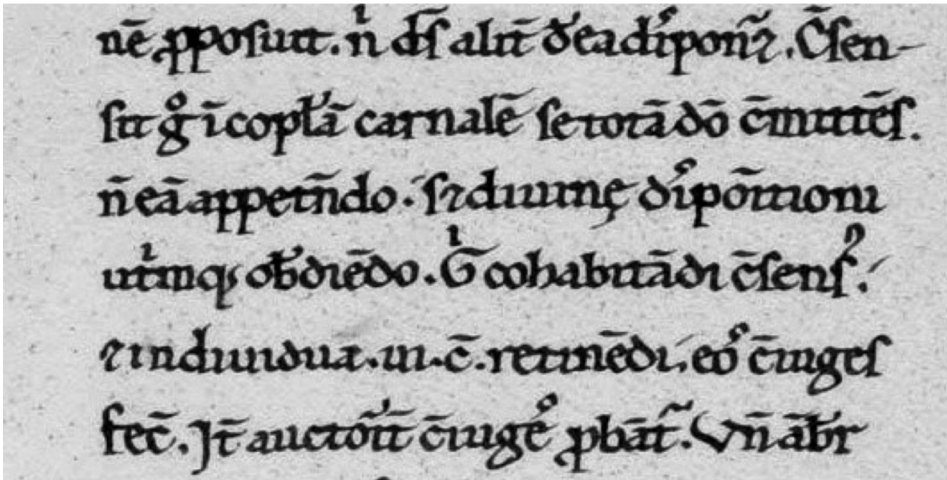 nē ꝓposuit. nͥ ds̄ alit̄ de ea disponat̉. C̄sen-
sit gͦ ī coplā carnalē se totā dō c̄mittēs.
n̄ eā appetn̄do. s; diuinę disponi̅tioni
utͥmq; obediēdo. Gͥ cohabitādi c̄sens᾿.
⁊ indiuiduā. ui. c̄. retinēdi, eos c̄iuges
fec̄. Jt̄ auctoit̄ c̄iugē ꝓbāt̉. Vn̄ ābr